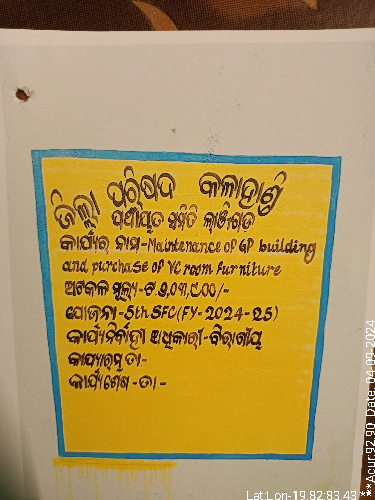 ଜିଲ୍ଲା ପରିଷଦ କଳାହାଣ୍ଡି
ପଞ୍ଚାୟତ ସମିତି ଲାଞ୍ଜିଗଡ଼
କାର୍ଯ୍ୟର ନାମ-Maintenance of GP building
and purchase of VC room furniture
ଅଟକଳ ମୂଲ୍ୟ-ଟ
ଯୋଜନା-5th SFC(FY-2024-25)
କାର୍ଯ୍ୟନିର୍ବାହୀ ଅଧିକାରୀ-ବିଭାଗୀୟ
କାର୍ଯ୍ୟାରମ୍ଭ ତା-
କାର୍ଯ୍ୟଶେଷ-ତା-
Lat:Lon-19.82:83.43***Acur:92.90 Date:04-09-2024